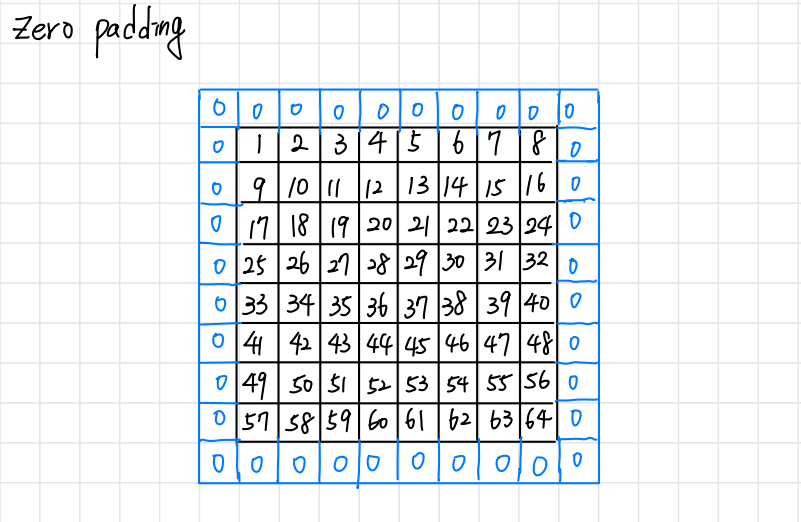 Zero padding
0 0 0 0 0 0 0 0 0 0
0 1 2 3 4 5 6 7 8 0
0 9 10 11 12 13 14 15 16 0
0 17 18 19 20 21 22 23 24 0
0 25 26 27 28 29 30 31 32 0
0 33 34 35 36 37 38 39 40 0
0 41 42 43 44 45 46 47 48 0
0 49 50 51 52 53 54 55 56 0
0 57 58 59 60 61 62 63 64 0
0 0 0 0 0 0 0 0 0 0